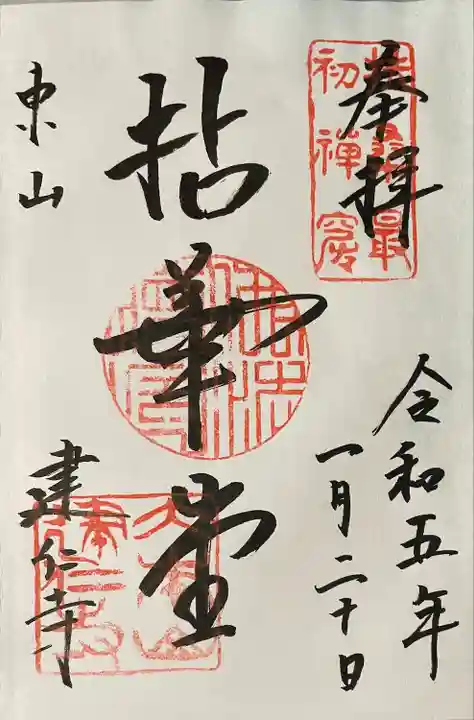 奉拝
令和五年
一月二十日
拈華堂
東山
建仁寺
扶桑最
初禅窟